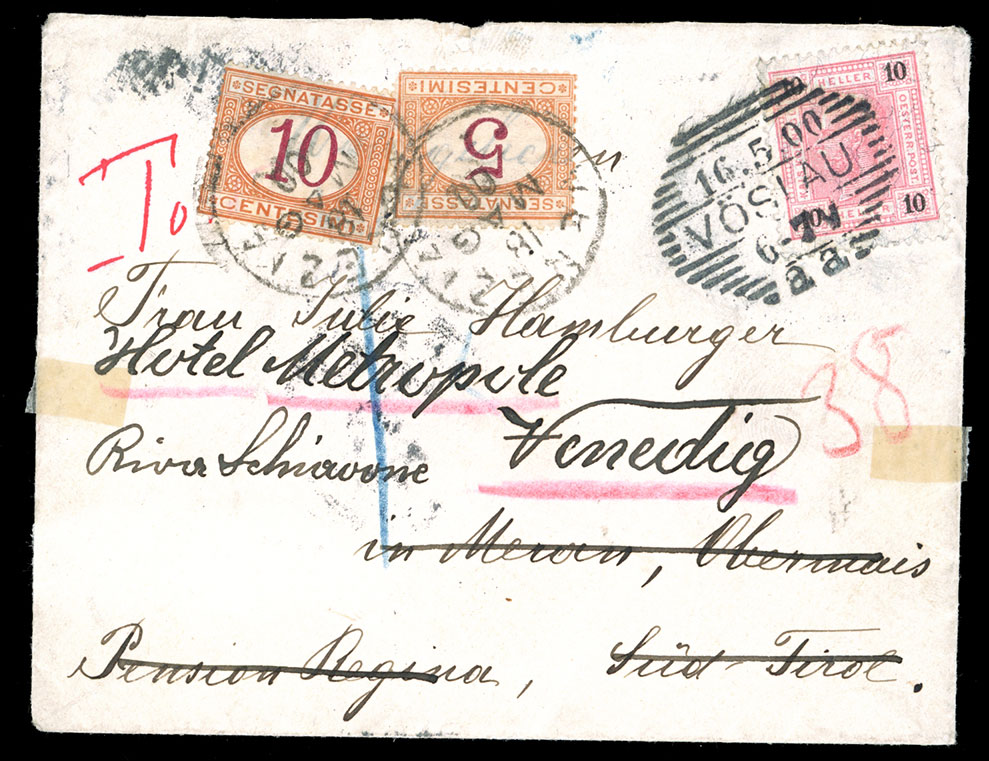 SEGNATASSE
10
CENTESIMI
CENTESIMI
5
SEGNATASSE
HELLER 10
OESTERR. POST.
HELLER 10
16.5.00
VÖSLAU
6-7N
a a
To
Frau Julie Hamburger
Hotel Metropole
Venedig
38
Riva Schiavone
in Meran, Obermais
Pension Regina, Süd-Tirol.